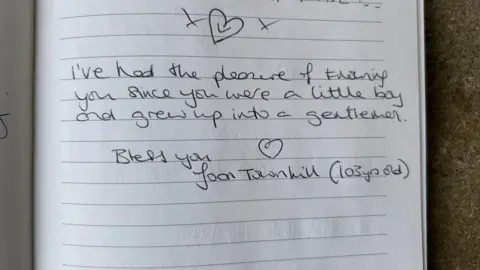 I've had the pleasure of knowing
you since you were a little boy
and grew up into a gentleman.
Bless you
Joan Townhill (103 yrs old)